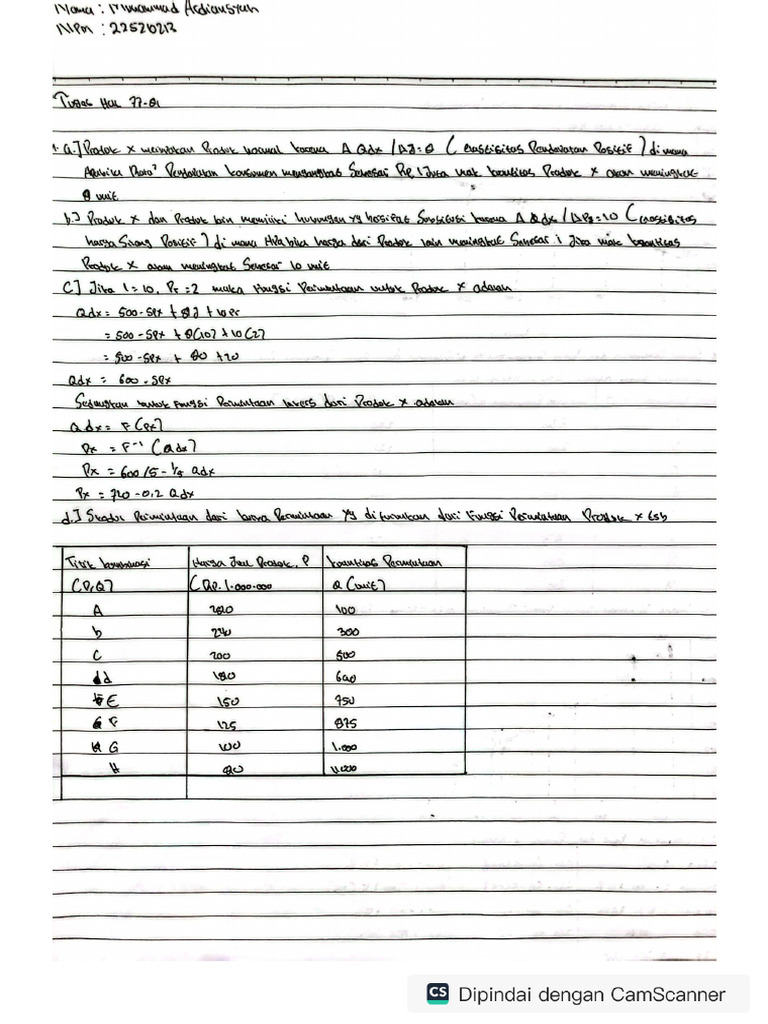 Nama : Muhammad Ardiansyah
NPM : 22520213
Tugas Hal 77-81
1. a.] Produk x merupakan Produk normal karena Δ Qdx / ΔI = 8 ( elastisitas Pendapatan Positif ) di mana
Apabila Rata² Pendapatan konsumen meningkat Sebesar Rp 1 Juta mak kuantitas Produk x akan meningkat
8 unit
b.] Produk x dan Produk lain memiliki hubungan yg bersifat Substitusi karena Δ Qdx / ΔPr = 10 ( elastisitas
harga Silang Positif ) di mana APabila harga dari Produk lain meningkat Sebesar 1 Jita mak kuantitas
Produk x akan meningkat Sebesar 10 unit
C] Jika I = 10, Pr = 2 maka Fungsi Permintaan untuk Produk x adalah
Qdx = 500 - 5Px + 8I + 10 Pr
= 500 - 5Px + 8(10) + 10 (2)
= 500 - 5Px + 80 + 20
Qdx = 600 - 5Px
Sedangkan untuk Fungsi Permintaan invers dari Produk x adalah
Qdx = F (Px)
Px = F⁻¹ (Qdx)
Px = 600 /5 - 1/5 Qdx
Px = 120 - 0,2 Qdx
d.] Skedul Permintaan dari kurva Permintaan yg di turunkan dari Fungsi Permintaan Produk x Gsb
Titik kombinasi Harga Jual Produk, P kuantitas Permintaan
(P,Q) (Rp. 1.000.000 Q (unit)
A 280 100
b 240 300
C 200 500
d 180 600
E 150 750
F 125 875
G 100 1.000
H 80 1.000
CS Dipindai dengan CamScanner